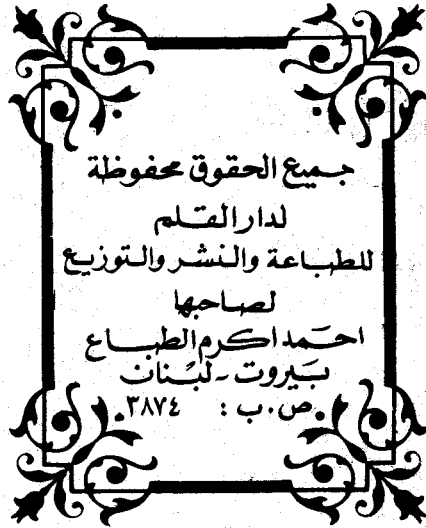 جميع الحقوق محفوظة
لدار القلم
للطباعة والنشر والتوزيع
لصاحبها
احمد اكرم الطباع
بيروت - لبنان
ص.ب : ٣٨٧٤.